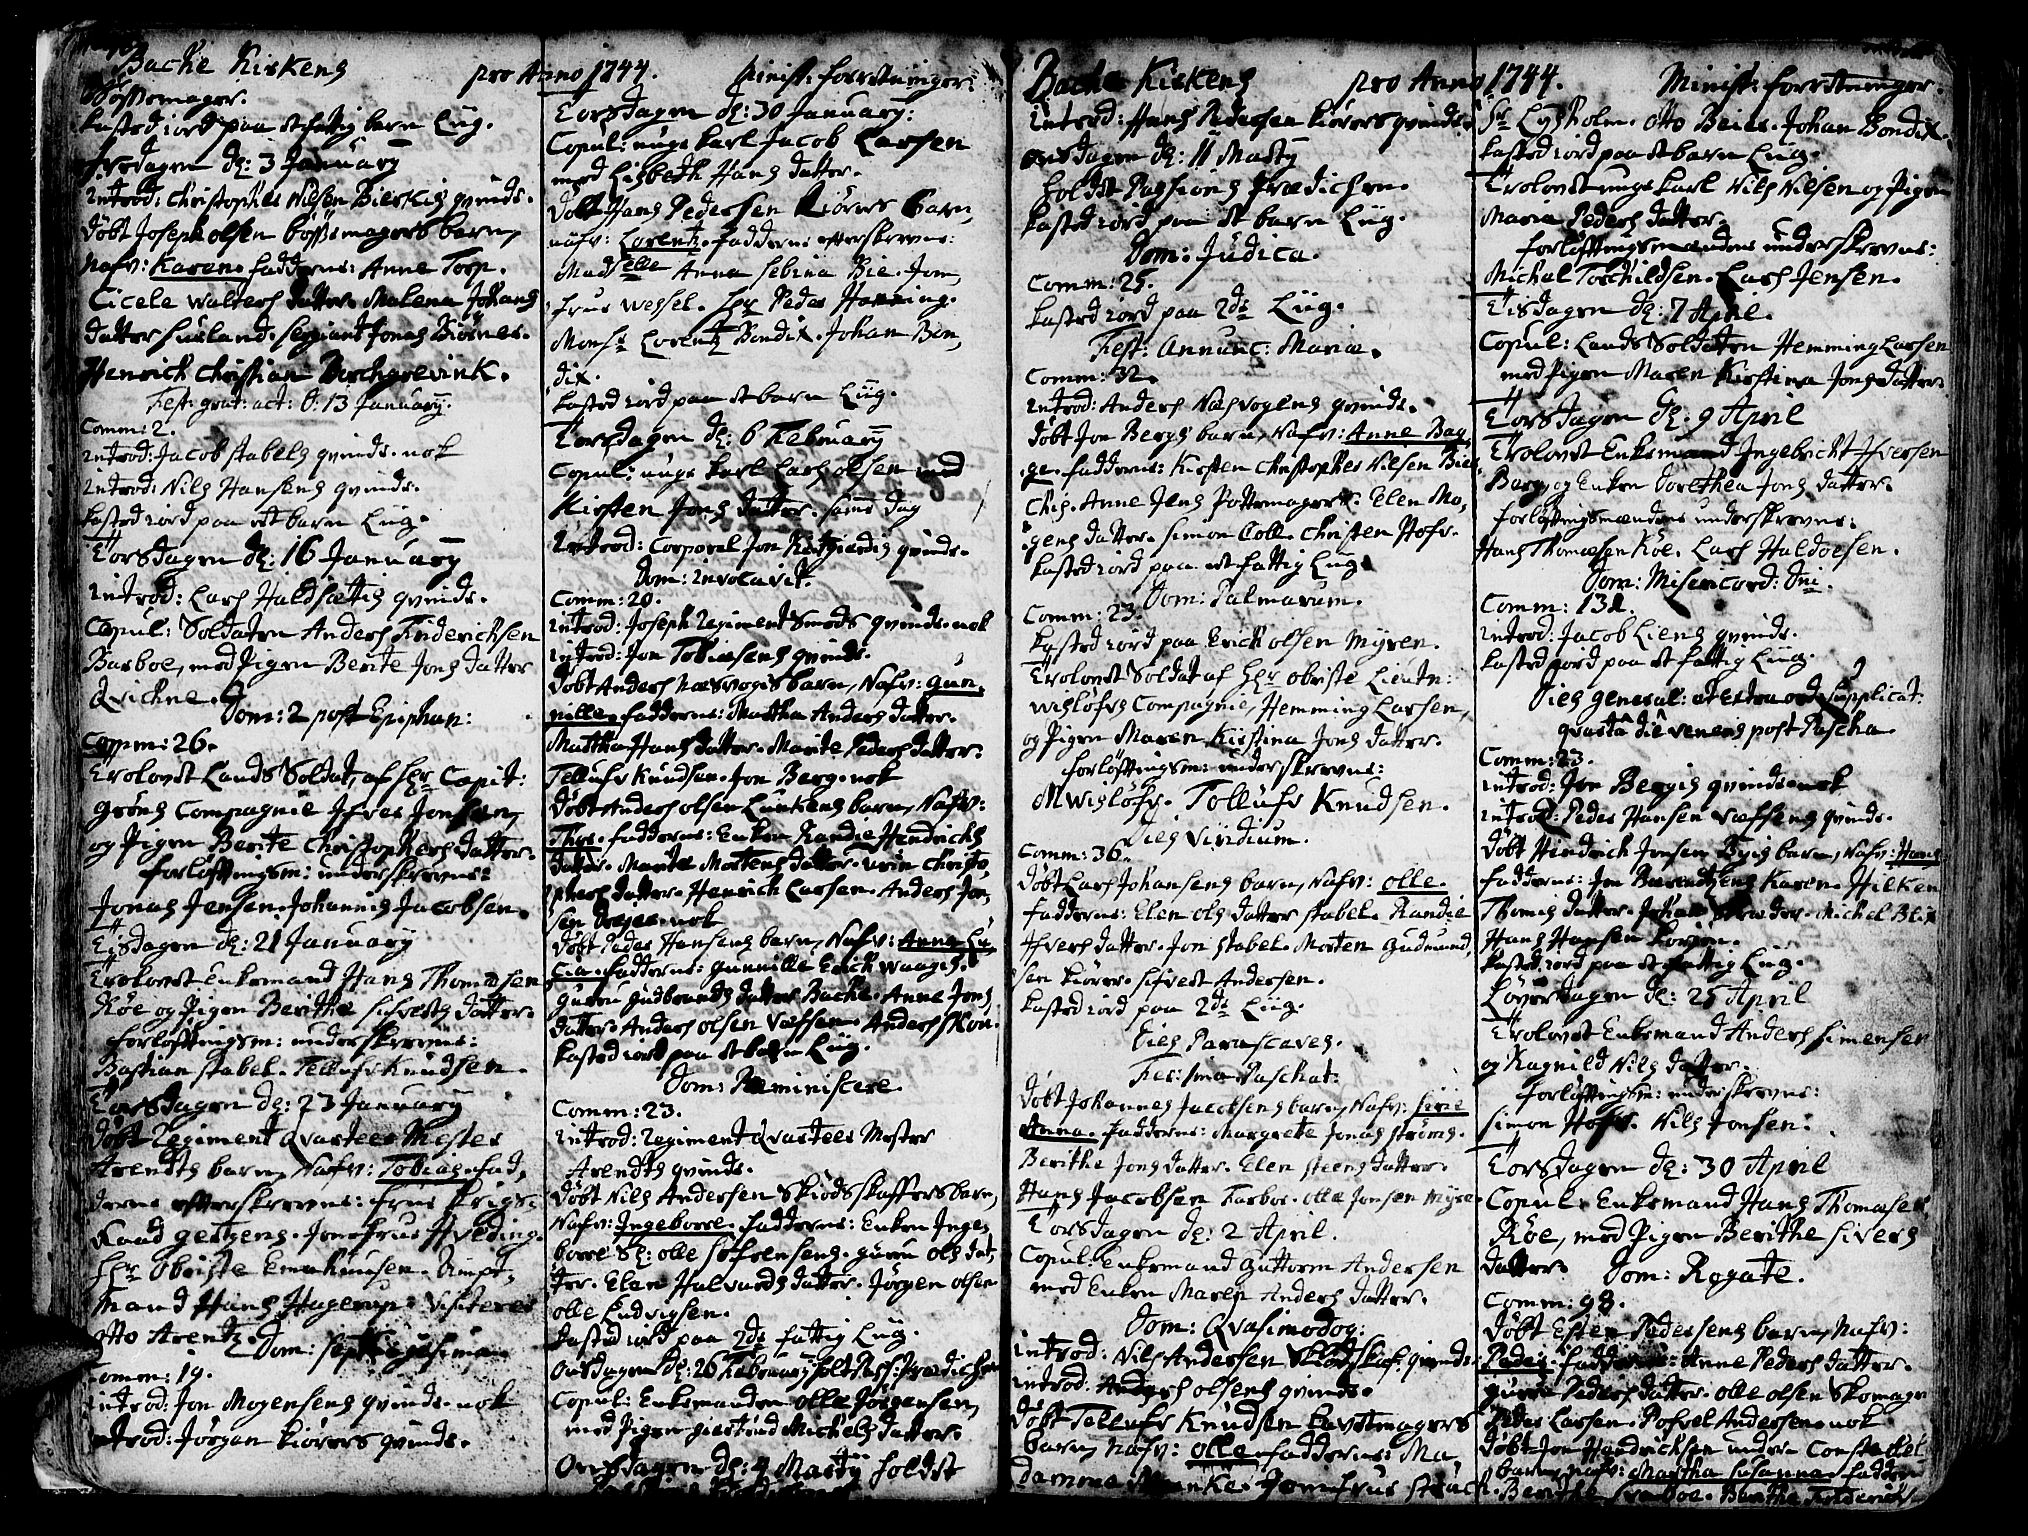 Bache Kirkens pro Anno 1744. Minist: forretninger:
Bøssemager.
kasted iord paa et fattig barn Liig.
fredagen dℓ: 3 January
introd: Christopher Nilsen Bierkis qvinde.
døbt Joseph olsen bøssemagers barn,
nafv: Karen. fadderne: Anne Torp.
Cicele Walters datter. Malena Johans
datter Huusland. Sergiant Jonas Biørnes.
Henrich Christian Borchgrevink.
Fest: grat: act: d: 13 January.
Comm: 2.
introd: Jacob stabels qvinde. nok
introd: Nils Hansens qvinde.
kasted iord paa et barn Liig.
Torsdagen dℓ: 16 January
introd: Lars Haldsætis qvinde.
Copul: Soldaten Anders Friderichsen
Barboe, med Pigen Berite Jons datter
Qvichne.
Dom: 2 post Epiphan:
Comm: 26.
Trolovet Lands Soldat af Hr Capit:
Grøns Compagnie Ifver Jonsen,
og Pigen Berite Christophers datter.
forløftningsm: underskrevne:
Jonas Jensen. Johannis Jacobsen.
Tisdagen dℓ: 21 January
Trolovet Enkemand Hans Thomæsen
Røe og Pigen Berithe Sifverts datter.
forløftningsm: underskrevne:
Bastian stabel. Tellufr Knudsen.
Torsdagen dℓ: 23 January
døbt Regiment Qvarteer Mester
Arendts barn, nafv: Tobias. fad,
derne efterskrevne: frue Krigs-
Raad Getzens. Jomfrue Hveding.
Hr Obriste Emahusen. Ampt,
mand Hans Hagerup. Visiteur
otto Arentz. Dom: septuagesima
Comm: 19.
introd: Jon Mogensens qvinde. nok
introd: Jørgen kiørers qvinde.
Torsdagen dℓ: 30 January:
Copul: unge karl Jacob Larsen
med Lisbeth Hans datter.
døbt Hans Pedersen kiørers barn,
nafv: Lorentz. fadderne efterskrevne:
Madselle Anna Sebina Bie. Jom,
frue Wessel. Hr Peder Hanning.
Monsr Lorentz Bondix. Johan Bon,
dix.
kasted iord paa et barn Liig.
Torsdagen dℓ: 6 February
Copul: unge karl Lars olsen med
Kirsten Jons datter. samme dag
introd: Corporal Jon qvinde.
Dom: invocavit.
Comm: 20.
introd: Joseph Regiment Smeds qvinde. nok
introd: Jon Tobiasens qvinde.
døbt Anders Næsvogis barn, nafv: Gun,
nille. fadderne: Martha Anders datter.
Martha Hans datter. Marite Peders datter.
Tellufr Knudsen. Jon Berg. nok
døbt Anders olsen Lunkens barn, nafv:
Thor. fadderne: Enken Randie Hendrichs
datter. Marite Mortens datter. Christo,
phers datter. Henrich Larsen. Anders Jon,
sen nok
døbt Peder Hansens barn, nafv: Anna Lu,
cia. fadderne: Gunnille Erich Waagis.
Guruu Gudbrands datter Bache. Anne Jons
datter. Anders olsen Væfsen. Anders
kasted iord paa et barn Liig.
Dom: Reminiscere.
Comm: 23.
introd: Regiment Qvarteer Mester
Arendts qvinde.
døbt Nils Andersen Skiødskaffers barn,
nafv: Ingeborre. fadderne: Enken Inge,
borre Sl: olle Sørensens. Guru ols dat,
ter. Elen Halvards datter. Jørgen olsen
olle Ludvigsen.
kasted iord paa 2de fattig Liig.
Onsdagen dℓ: 26 February holdt Pass: Prædichen
Copul: Enkemanden olle Jørgensen,
med Pigen giertrud Michels datter.
Onsdagen dℓ: 4 Marty holdt
Bache Kirkens pro Anno 1744. Minist: forretninger.
introd: Hans Pedersen kiørers qvinde.
onsdagen dℓ: 11 Marty
holdt Passions Prædichen.
kasted iord paa et barn Liig.
Dom: Judica.
Comm: 25.
kasted iord paa 2de Liig.
Fest: Annunc: Mariæ.
Comm: 32.
introd: Anders Næsvogens qvinde.
døbt Jon Bergs barn, nafv: Anne Bag,
ge. fadderne: Kirsten Christopher Nilsen Bier
chis. Anne Jens Pottemagers. Elen Mo,
gens datter. Simon Colle. Christen Hofr.
kasted iord paa et fattig Liig.
Dom: Palmarum.
Comm: 23.
kasted iord paa Erich olsen Myren.
Trolovet Soldat af Hr obriste Lieutn:
Wisløfs Compagnie, Hemming Larsen,
og Pigen Maren Kirstina Jons datter.
forløftningsm: underskrevne:
MWisløfr. Tollufr Knudsen.
Dies Viridium.
Comm: 36.
døbt Lars Johansens barn, nafv: olle.
fadderne: Elen ols datter stabel. Randie
Ifvers datter. Jon stabel. Morten Gudmund,
sen kiører. Sifvert Andersen.
kasted iord paa 2de Liig.
Dies Parasceves.
Fer: 1ma Paschat:
døbt Johannes Jacobsens barn, nafv: Sirie
Anna. fadderne: Margrete Jonas strøms.
Berithe Jons datter. Elen steens datter.
Hans Jacobsen Farboe. olle Jonsen Myre.
Torsdagen dℓ: 2 April.
Copul: Enkemand Guttorm Andersen
med Enken Maren Anders datter.
Dom: Qvasimodog:
introd: Nils Andersen Skiødskaf: qvinde.
introd: Anders olsens qvinde.
døbt Tellufr Knudsen
barn, nafv: olle. fadderne: Ma,
damme Munke. Jomfrue
Sr Lysholm. otto Beier. Johan Bondix.
kasted iord paa et barn Liig.
Trolovet unge karl Nils Nilsen og Pigen
Maria Peders datter.
forløftningsmændene underskrevne:
Michel Torchildsen. Lars Jensen.
Tisdagen dℓ: 7 April.
Copul: Lands Soldaten Hemming Larsen
med Pigen Maren Kirstina Jons datter.
Torsdagen dℓ: 9 April
Trolovet Enkemand Ingebricht Ifversen
Berg, og Enken Dorethea Jons datter.
forløftningsmændene underskrevne:
Hans Thomæsen Røe. Lars Haldorsen.
Dom: Misericord: Dni.
Comm: 132.
introd: Jacob Liens qvinde.
kasted iord paa et fattig Liig.
Dies general: et extraord supplicat.
qvarta die veneris post Pascha.
Comm: 23.
introd: Jon Bergis qvinde. nok
introd: Peder Hansen Væfsens qvinde.
døbt Hindrich Jensen barn, nafv: Hans.
fadderne: Jon Karen Hilken
Thomis datter. Johan Michel Blix
Hans Hansen
kasted iord paa et fattig Liig.
Løverdagen dℓ: 25 April
Trolovet Enkemand Anders Simensen
og Ragnild Nils datter.
forløftningsm: underskrevne:
Simon Hofr. Nils Jonsen:
Torsdagen dℓ: 30 April
Copul: Enkemand Hans Thomæsen
Røe, med Pigen Berithe Sivers
datter. Dom: Rogate.
Comm: 98.
døbt Esten Pedersens barn, nafv:
Peder. fadderne: Anne Peders datter.
Guru Peders datter. olle olsen Skomager
Peder Larsen. Pofvel Andersen. nok
døbt Jon Hendrichsen under Constabel
barn, nafv: Martha Susanna. faddere
Berithe Berithe Friderichs